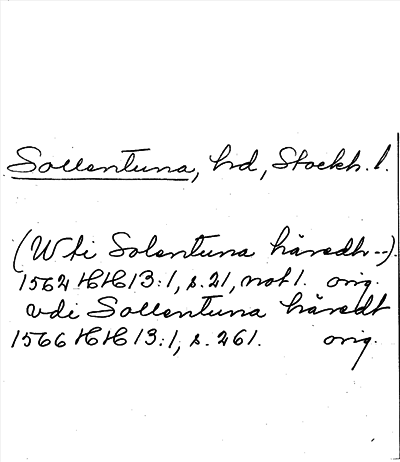 Sollentuna, hd, Stockh. l.
(Wti Solentuna häredh --).
1562 HH 13:1, s. 21, not 1. orig.
vdi Sollentuna häredt
1566 HH 13:1, s. 261. orig.